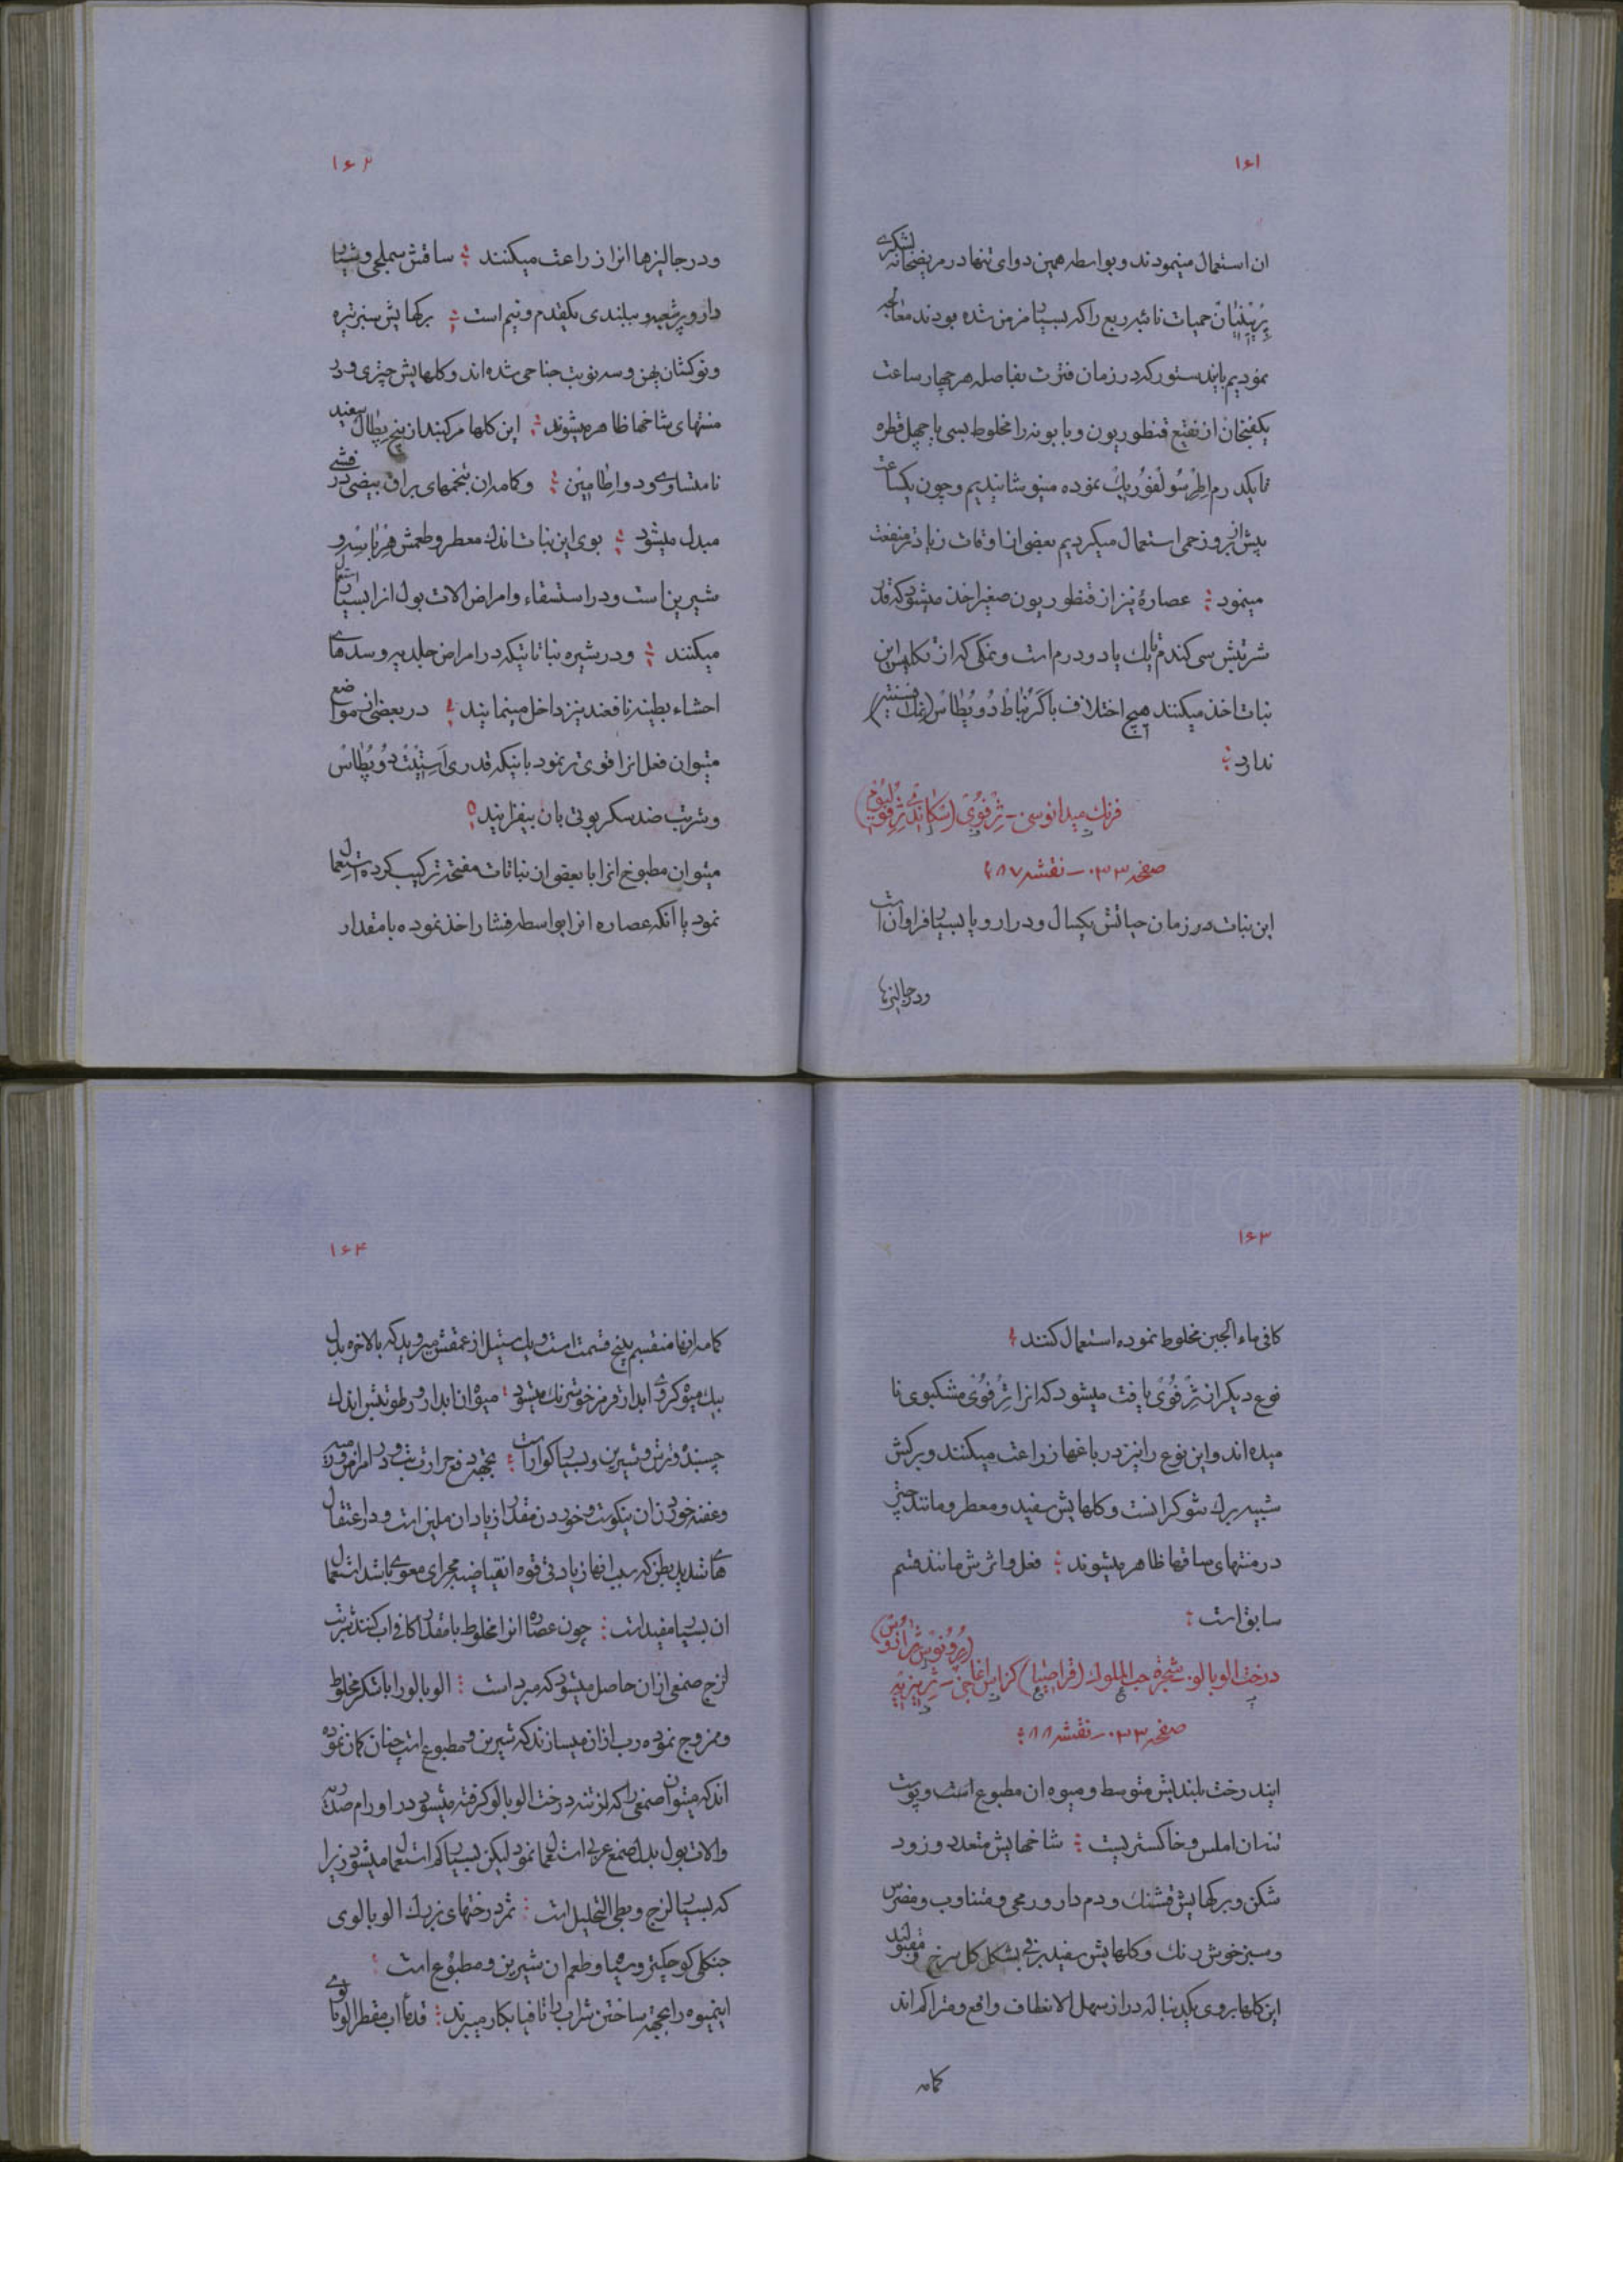 ۱۶۱
ان استعمال مینمودند و بواسطه همین دوای تنها در مریضخانه لشکری
پرپنیان حمیات نائبه ربع را که بسیار مزمن شده بودند معالجه
نمودیم بایندستور که در زمان فترت بفاصله هر چهار ساعت
یکفنجان از نقیع قنطوریون و بابونه را مخلوط بسی یا چهل قطره
تا یکدرم اطر سولفوریک نموده مینوشانیدیم و چون یکساعت
پیش از بروز حمی استعمال میکردیم بعضی اوقات زیادتر منفعت
مینمود عصارهٔ نیز از قنطوریون صغیر اخذ میشود که قدر
شربتش سی کندم تا یک یا دو درم است و نمکی که از تکلیس این
نبات اخذ میکنند هیچ اختلاف با کربناط دو پطاس (نمک افسنتین)
ندارد
فرنک میدانوسی - ژرفوی (اسکاندی ژرفولیوم)
صفحه ۳۳۰ - نقشه ۸۷
این نبات در زمان حیاتش یکسال و در اروپا بسیار فراوان است
ودرجالیزها
۱۶۲
و در جالیزها انرا زراعت میکنند ساقش سملجی و شیار
دار و پرشعبه و ببلندی یکقدم و نیم است برکهایش سبز تیره
و نوکشان پهن و سه نوبت جناحی شده اند و کلهایش چتری و در
منتهای شاخها ظاهر میشوند این کلها مرکبند از پنج پطال سفید
نامتساوی و دو اطامین و کامه ان بتخمهای براق بیضی در قشری
مبدل میشود بوی این نبات اندک معطر و طعمش
شیرین است و در استسقاء و امراض الات بول انرا بسیار استعمال
میکنند و در شیره نباتاتیکه در امراض جلدیه و سده های
احشاء بطنیه نافعند نیز داخل مینمایند در بعضی از مواضع
میتوان فعل انرا قوی تر نمود باینکه قدری استیت دو پطاس
و شربت ضد سکربوتی بان بیفزایند
میتوان مطبوخ انرا با بعضی از نباتات مفتحه ترکیب کرده استعمال
نمود یا آنکه عصاره انرا بواسطه فشار اخذ نموده با مقدار
۱۶۳
کافی ماء الجبن مخلوط نموده استعمال کنند
نوع دیکر از ژرفوی یافت میشود که انرا ژرفوی مشکبوی نا
میده اند و این نوع را نیز در باغها زراعت میکنند و برکش
شبیه ببرک شوکرانست و کلهایش سفید و معطر و مانند چتر
در منتهای ساقها ظاهر میشوند فعل و اثرش مانند قسم
سابق است
درخت الوبالو. شجرة حب الملوک (قراصیا) کراس اغاجی - ژریزیه
صفحه ۳۳۰ - نقشه ۸۸
ایندرخت بلندیش متوسط و میوه ان مطبوع است و پوست
تنه ان املس و خاکستریست شاخهایش متعدد و زود
شکن و برکهایش قشنک و دم دار و رمحی و متناوب و مضرس
و سبز خوش رنک و کلهایش سفید برفی بشکل کل سرخ و مقبولند
این کلها بروی یکدنباله دراز سهل الانعطاف واقع و متراکم اند
کامه
۱۶۴
کامه انها منقسم پنج قسمت است و یک پستیل از عمقش میروید که بالاخره بدل
بیک میوه کروی ابدار قرمز خوشرنک میشود میوه ان ابدار و رطوبتش اندک
چسبنده و ترش و شیرین و بسیار کوارا است بجهة دفع حرارت تب و در امراض
و عفنه خوردن ان نیکوست و خوردن مقدار زیاد ان ملین است و در اعتقال
های شدید بطن که سبب انها زیادتی قوه انقباضیه مجرای معوی باشد استعمال
ان بسیار مفید است چون عصاره انرا مخلوط با مقدار کافی اب کنند شربت
لزج صمغی ازان حاصل میشود که مبرد است الوبالو را با شکر مخلوط
و ممزوج نموده رب ازان میسازند که شیرین و مطبوع است چنان کمان نموده
اند که میتوان صمغی را که از تنه درخت الوبالو کرفته میشود در اورام صدریه
و الات بول بدل صمغ عربی استعمال نمود لیکن بسیار کم استعمال میشود زیرا
که بسیار لزج و بطی التحلیل است ثمر درختهای بزرک الوبالوی
جنکلی کوچکتر و سیاه و طعم ان شیرین و مطبوع است
اینمیوه را بجهة ساختن شراب راتافیا بکار میبرند قدما اب مقطر الوبالوی